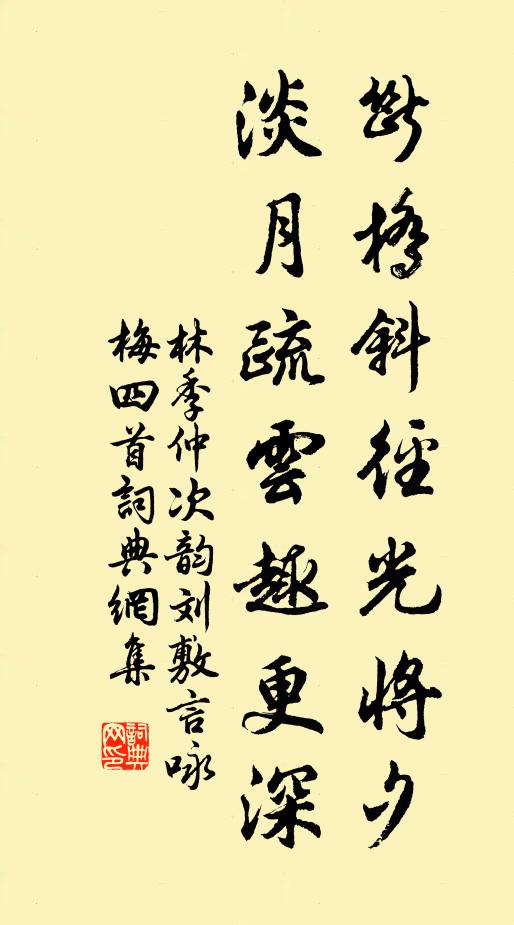 斷橋斜徑光將夕
淡月疏雲趣更深
林季仲次韵刘敷言咏
梅四首詞典網集
詞典
网印